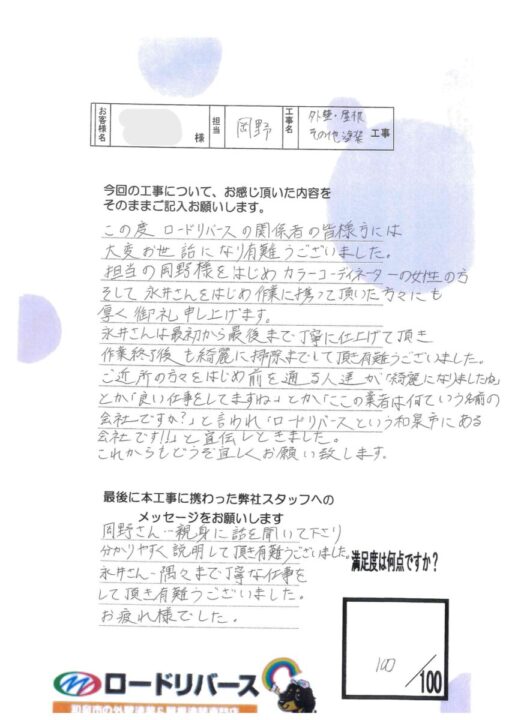 お客様名 様 担当 岡野 工事名 外壁・屋根
その他塗装 工事
今回の工事について、お感じ頂いた内容を
そのままご記入お願いします。
この度 ロードリバースの関係者の皆様方には
大変お世話になり有難うございました。
担当の岡野様をはじめ カラーコーディネーターの女性の方
そして 永井さんをはじめ作業に携って頂いた方々にも
厚く御礼申し上げます。
永井さんは最初から最後まで丁寧に仕上げて頂き
作業終了後も綺麗に掃除までして頂き有難うございました。
ご近所の方々をはじめ前を通る人達が「綺麗になりましたね」
とか「良い仕事をしてますね」とか「ここの業者は何ていう名前の
会社ですか?」と言われ「ロードリバースという和泉市にある
会社です!!」と宣伝しときました。
これからもどうぞ宜しくお願い致します。
最後に本工事に携わった弊社スタッフへの
メッセージをお願いします
岡野さん…親身に話を聞いて下さり
分かりやすく説明して頂き有難うございました。
永井さん…隅々まで丁寧な仕事を
して頂き有難うございました。
お疲れ様でした。
満足度は何点ですか?
100/100
ロードリバース
和泉市の外壁塗装&屋根塗装専門店